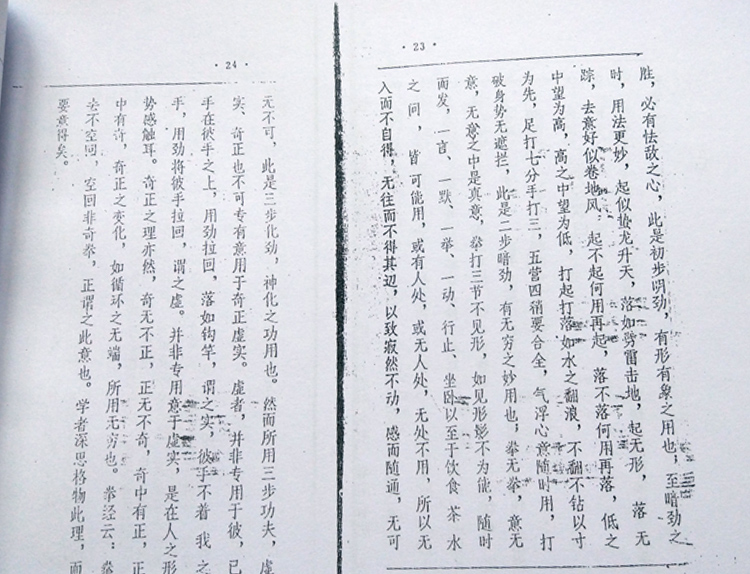 · 23 ·
胜，必有怯敌之心，此是初步明劲，有形有象之用也；至暗劲之
时，用法更妙，起似蛰龙升天，落如劈雷击地，起无形，落无
踪，去意好似卷地风。起不起何用再起，落不落何用再落，低之
中望为高，高之中望为低，打起打落如水之翻浪，不翻不钻以寸
为先，足打七分手打三，五营四稍要合全，气浮心意随时用，打
破身势无遮拦，此是二步暗劲，有无穷之妙用也；拳无拳，意无
意，无意之中是真意，拳打三节不见形，如见形影不为能，随时
而发，一言、一默、一举、一动、行止、坐卧以至于饮食 茶 水
之间，皆可能用，或有人处，或无人处，无处不用，所以无
入而不自得，无往而不得其边，以致寂然不动，感而随通，无可
· 24 ·
无不可，此是三步化劲，神化之功用也。然而所用三步功夫，虚
实、奇正也不可专有意用于奇正虚实。虚者，并非专用于彼，已
手在彼手之上，用劲拉回，落如钩竿，谓之实，彼手不着 我 之
手，用劲将彼手拉回，谓之虚。并非专用意于虚实，是在人之形
势感触耳。奇正之理亦然，奇无不正，正无不奇，奇中有正，正
中有奇，奇正之变化，如循环之无端，所用无穷也。拳经云：拳
去不空回，空回非奇拳，正谓之此意也。学者深思格物此理，而
要意得矣。